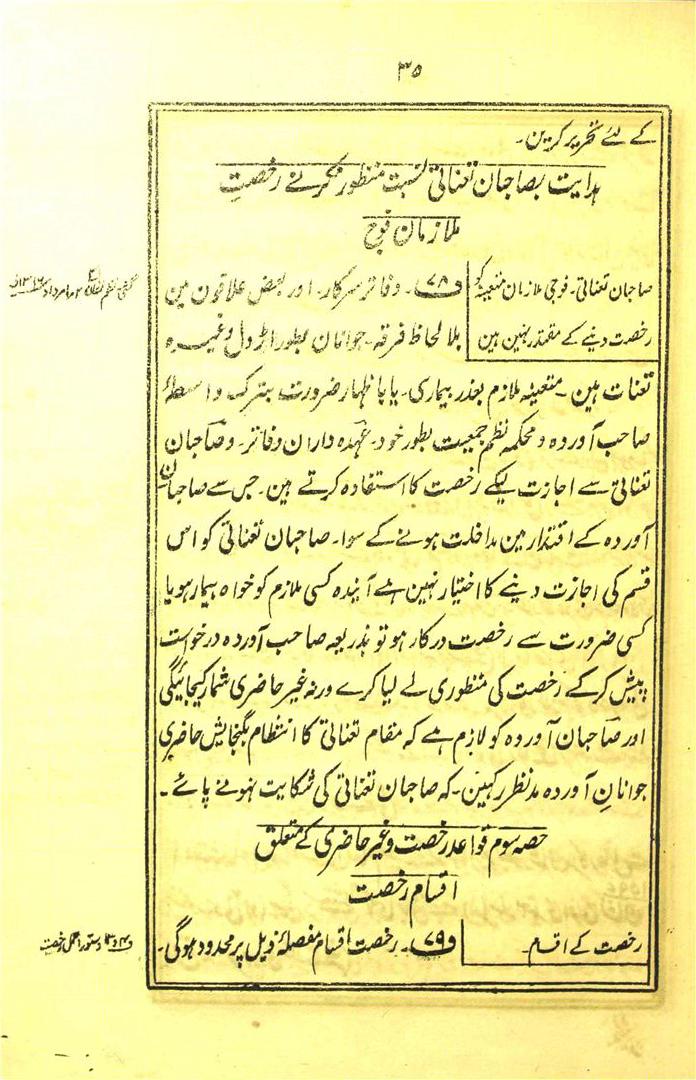 ۳۵
کے لئے تحریر کرین۔
ہدایت بصاحبان تعناتی نسبت منظور نکرنے رخصتِ
ملازمان فوج
صاحبان تعناتی۔ فوجی ملازمان متعینہ کو
رخصت دینے کے مقتدر نہین ہین
ف۷۸۔ دفاتر سرکار۔ اور بعض علاقون مین
بلا لحاظ فرقہ۔ جوانان بطور اڑدل وغیرہ
تعنات ہین۔ متعینہ ملازم بعذر بیماری۔ یا باظہار ضرورت بترک واسطۂ
صاحب آوردہ و محکمہ نظم جمعیت بطور خود۔ عہدہ داران دفاتر۔ وصاحبان
تعناتی سے اجازت لیکے رخصت کا استفادہ کرتے ہین۔ جس سے صاحبانِ
آوردہ کے اقتدار مین مداخلت ہونے کے سوا۔ صاحبان تعناتی کو اس
قسم کی اجازت دینے کا اختیار نہین ہے آیندہ کسی ملازم کو خواہ بیمار ہو یا
کسی ضرورت سے رخصت درکار ہو تو بذریعہ صاحب آوردہ درخواست
پیش کرکے رخصت کی منظوری لے لیا کرے ورنہ غیر حاضری شمار کیجائیگی
اور صاحبان آوردہ کو لازم ہے کہ مقام تعناتی کا انتظام بگنجایش حاضری
جوانانِ آوردہ مدنظر رکہین۔ کہ صاحبان تعناتی کی شکایت نہونے پائے۔
حصہ سوم قواعد رخصت وغیر حاضری کے متعلق
اقسام رخصت
رخصت کے اقسام۔
ف۷۹۔ رخصت اقسام مفصلۂ ذیل پر محدود ہوگی۔
دستور العمل رخصت